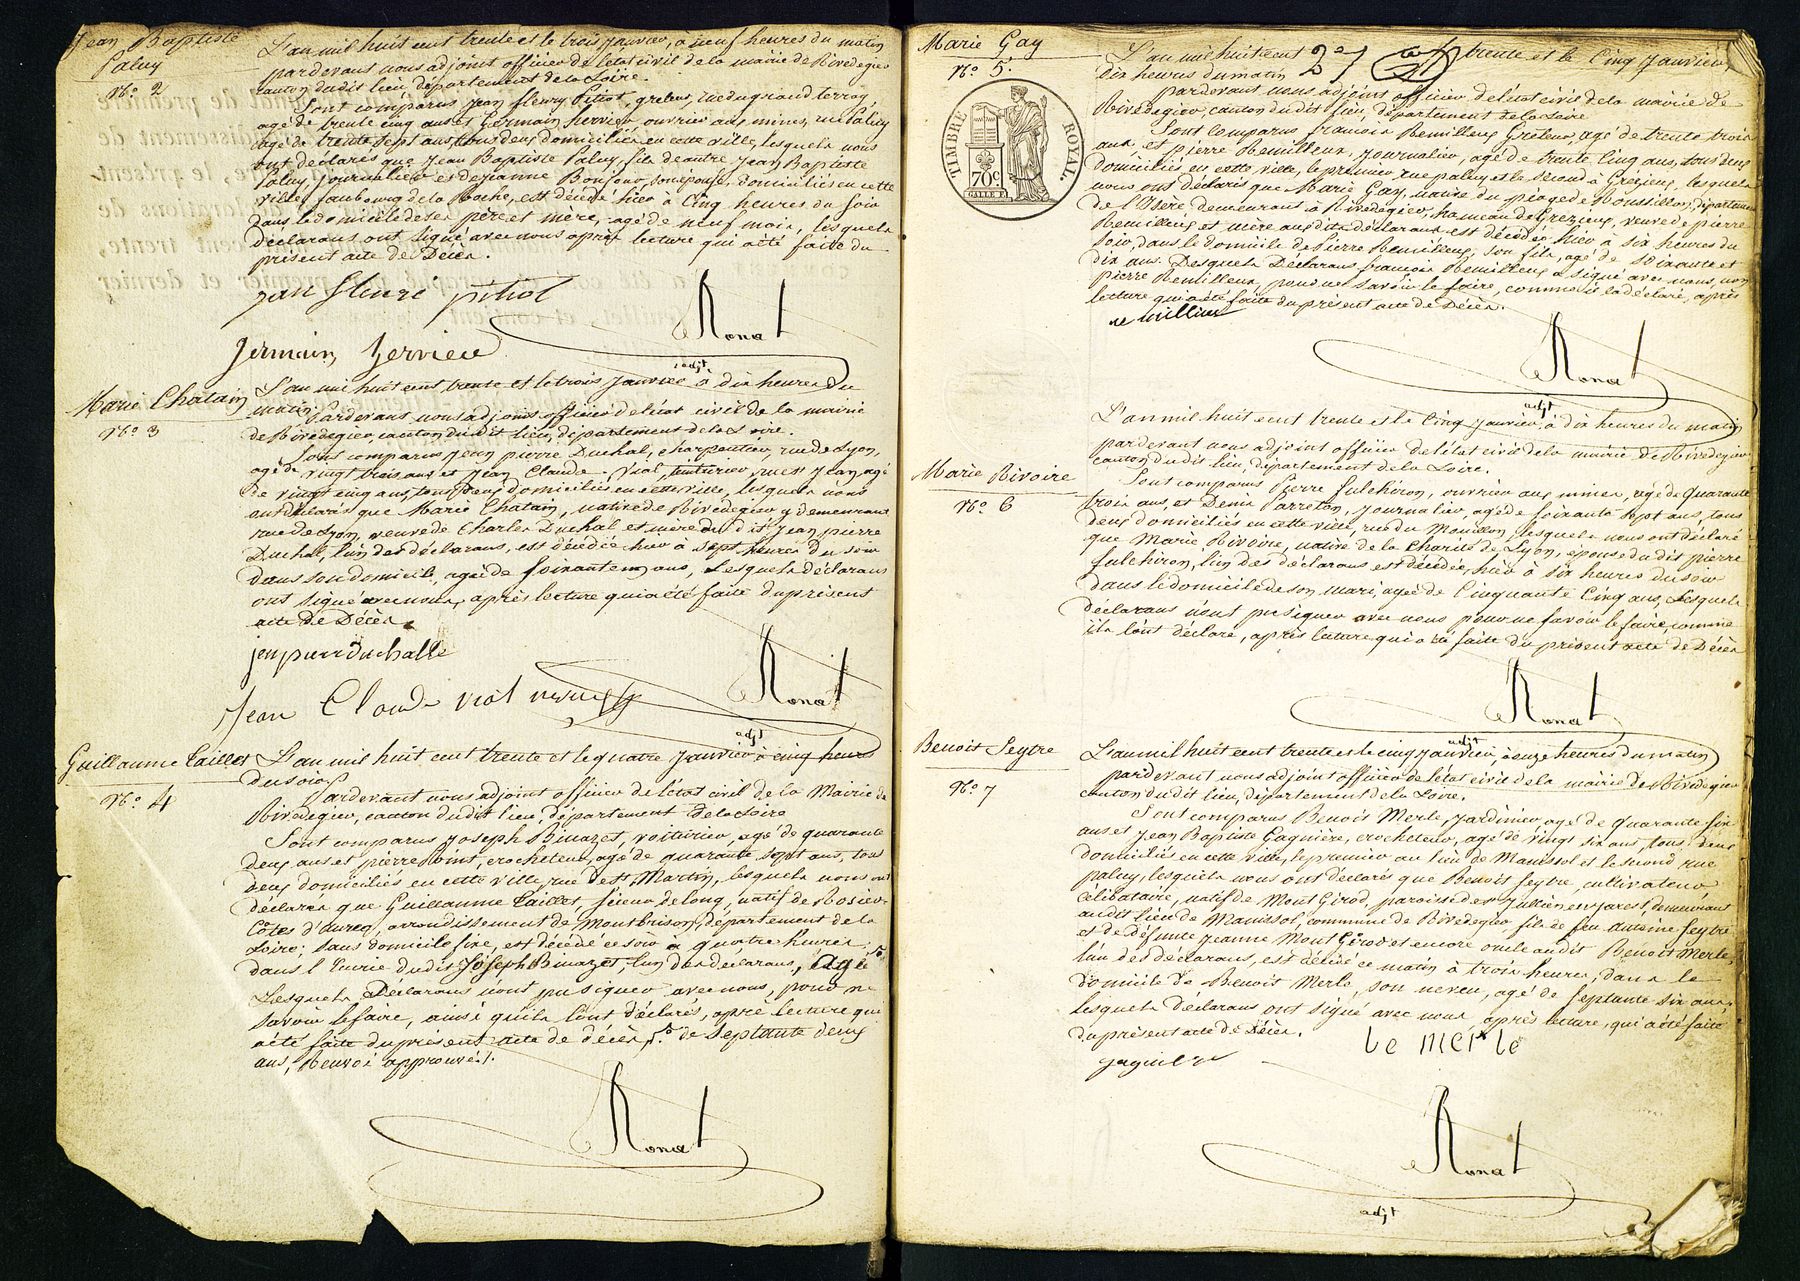 Jean Baptiste
Paluy
N.o 2
L'an mil huit cent trente et le trois Janvier, à neuf heures du matin
pardevant nous adjoint officier de l'état civil de la mairie de Rivedegier
canton dudit lieu, département de la Loire.
Sont comparus Jean fleury Pitiot, greleur, rue du grand terray
agé de trente cinq ans et Germain Hervier ouvrier aux mines, rue Paluy
agé de trente sept ans, tous deux domiciliés en cette ville, lesquels nous
ont déclarés que Jean Baptiste Paluy, fils de autre Jean Baptiste
Paluy, Journalier et de Jeanne Bonjour son épouse, domiciliés en cette
ville, faubourg de la Roche, est décédé hier à Cinq heures du soir
dans le domicile de ses père et mère, agé de neuf mois, lesquels
déclarans ont signé avec nous après lecture qui a été faite du
présent acte de Décès.
jean fleuri pitiot
Ronat
adjt
germain hervier
Marie Chatain
N.o 3
L'an mil huit cent trente et le trois Janvier à dix heures du
matin pardevant nous adjoint officier de l'état civil de la mairie
de Rivedegier, canton dudit lieu, département de la Loire.
Sont comparus Jean pierre Duchal, charpentier, rue de Lyon,
agé de vingt trois ans et Jean Claude Vial, teinturier, rue St Jean, agé
de vingt cinq ans, tous deux domiciliés en cette ville, lesquels nous
ont déclarés que Marie Chatain, native de Rivedegier y demeurant
rue de Lyon, veuve de Charles Duchal et mère du dit Jean pierre
Duchal, l'un des déclarans, est décédée hier à sept heures du soir
dans son domicile, agée de soixante un ans, Lesquels déclarans
ont signé avec nous, après lecture qui a été faite du présent
acte de Décès.
jen pierr Duchalle
Jean Claude vial
Ronat
adjt
Guillaume Caillet
N.o 4
L'an mil huit cent trente et le quatre Janvier à cinq heures
du soir
Pardevant nous adjoint officier de l'état civil de la Mairie de
Rivedegier, canton dudit lieu, département de la Loire
Sont comparus Joseph Binazet, voiturier, agé de quarante
deux ans et pierre Point, crocheteur, agé de quarante sept ans, tous
deux domiciliés en cette ville rue de St Martin, lesquels nous ont
déclarés que Guillaume Caillet, scieur de long, natif de Rosier
Côtes d'aurec, arrondissement de Montbrison, département de la
Loire; sans domicile fixe, est décédé ce soir à quatre heures,
dans l'Ecurie dudit Joseph Binazet, l'un des déclarans, agé
Lesquels Déclarans n'ont pu signer avec nous, pour ne
savoir le faire, ainsi qu'ils l'ont déclarés, après lecture qui
a été faite du présent acte de décès, de septante deux
ans, Renvoi approuvé.
Ronat
Marie Gay
N.o 5.
TIMBRE ROYAL.
70c
L'an mil huit cent trente et le Cinq Janvier,
27
dix heures du matin
pardevant nous adjoint officier de l'état civil de la mairie de
Rivedegier, canton dudit lieu, département de la Loire
Sont Comparus françois Remilleux Greleur, agé de trente trois
ans, et pierre Remilleux, Journalier, agé de trente Cinq ans, tous deux
domiciliés en cette ville, le premier rue paluy et le second à Grezieux, lesquels
nous ont déclarés que Marie Gay, native du péage de Roussillon, département
de l'Isère, demeurant à Rivedegier, hameau de Grezieux, veuve de pierre
Remilleux et mère auxdits déclarans est décédée hier à six heures du
soir, dans le domicile de Pierre Remilleux, son fils, agé de soixante et
dix ans. Lesquels Déclarans françois Remilleux a signé avec nous, non
pierre Remilleux, pour ne savoir le faire, comme il l'a déclaré, après
lecture qui a été faite du présent acte de Décès.
remillieu
Ronat
adjt
Marie Rivoire
N.o 6
L'an mil huit cent trente et le Cinq Janvier, à dix heures du matin
pardevant nous adjoint officier de l'état civil de la mairie de Rivedegier
canton dudit lieu, département de la Loire.
Sont comparus Pierre fulchiron, ouvrier aux mines, agé de quarante
trois ans, et Denis Parreton, Journalier, agé de soixante sept ans, tous
deux domiciliés en cette ville, rue du Mouillon, lesquels nous ont déclaré
que Marie Rivoire, native de la Charité de Lyon, épouse du dit pierre
fulchiron, l'un des déclarans est décédée, hier à six heures du soir
dans le domicile de son mari, agée de Cinquante Cinq ans, Lesquels
déclarans n'ont pu signer avec nous pour ne savoir le faire, comme
ils l'ont déclaré, après lecture qui a été faite du présent acte de Décès
Ronat
adjt
Benoit Seytre
N.o 7
L'an mil huit cent trente et le cinq Janvier, à onze heures du matin
pardevant nous adjoint officier de l'état civil de la mairie de Rivedegier
canton du dit lieu, département de la Loire.
Sont comparus Benoit Merle, Jardinier, agé de quarante six
ans et Jean Baptiste Gagnière, crocheteur, agé de vingt six ans, tous deux
domiciliés en cette ville, le premier au lieu de Manissol et le second rue
paluy, lesquels nous ont déclarés que Benoit Seytre, cultivateur
Célibataire, natif de Mont Girod, paroisse de St Jullien en jarest, demeurant
au dit lieu de Manissol, commune de Rivedegier, fils de feu antoine Seytre
et de défunte Jeanne Mont Girod et encore oncle au dit Benoit Merle,
l'un des déclarans, est décédé ce matin à trois heures, dans le
domicile de Benoit Merle, son neveu, agé de septante six ans,
lesquels déclarans ont signé avec nous après lecture, qui a été faite
du présent acte de Décès.
be merle
Ronat
adjt